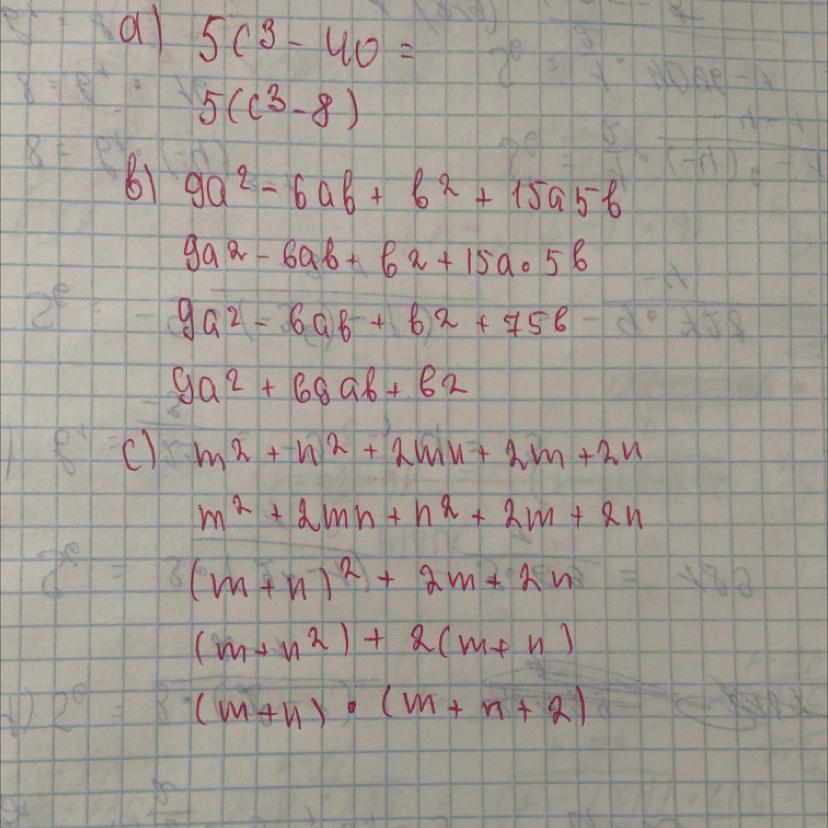 a) 5c³ - 40 =
5(c³ - 8)
в) 9a² - 6ав + в² + 15a5в
9a2 - 6ав + в2 + 15a · 5в
9a² - 6ав + в2 + 75в
9a² + 69ав + в2
c) m² + n² + 2mn + 2m + 2n
m² + 2mn + n² + 2m + 2n
(m + n)² + 2m + 2n
(m + n²) + 2(m + n)
(m + n) · (m + n + 2)